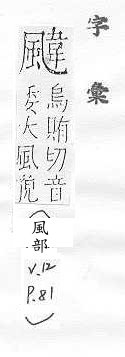 字彙
颹
烏賄切音
委大風貌
(風部
V.12
P.81
)